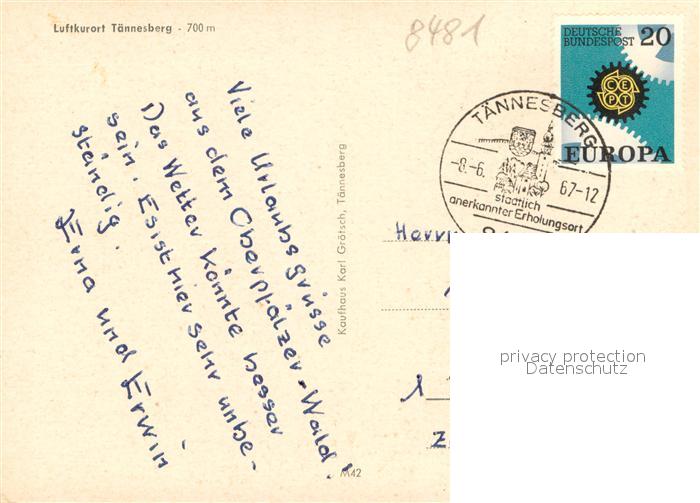 Luftkurort Tännesberg - 700 m
8481
DEUTSCHE
BUNDESPOST 20
CEPT
EUROPA
TÄNNESBERG
-8.-6. 67-12
staatlich
anerkannter Erholungsort
Viele Urlaubsgrüsse
aus dem Oberpfälzer-Wald!
Das Wetter könnte besser
sein. Es ist hier sehr unbe-
ständig.
Erna und Erwin
Kaufhaus Karl Grötsch, Tännesberg
M42
Herrn
1
privacy protection
Datenschutz